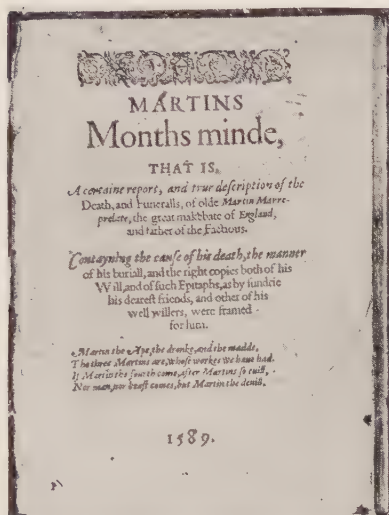 MARTINS
Months minde,
THAT IS,
A certaine report, and true description of the
Death, and Funeralls, of olde Martin Marre-
prelate, the great makebate of England,
and father of the Factious.
Contayning the cause of his death, the manner
of his buriall, and the right copies both of his
Will, and of such Epitaphs, as by sundrie
his dearest friends, and other of his
well willers, were framed
for him.
Martin the Ape, the dronke, and the madde,
The three Martins are, whose workes we haue had.
If Martin the fourth come, after Martins so euill,
Nor man, nor beast comes, but Martin the deuill.
1589.